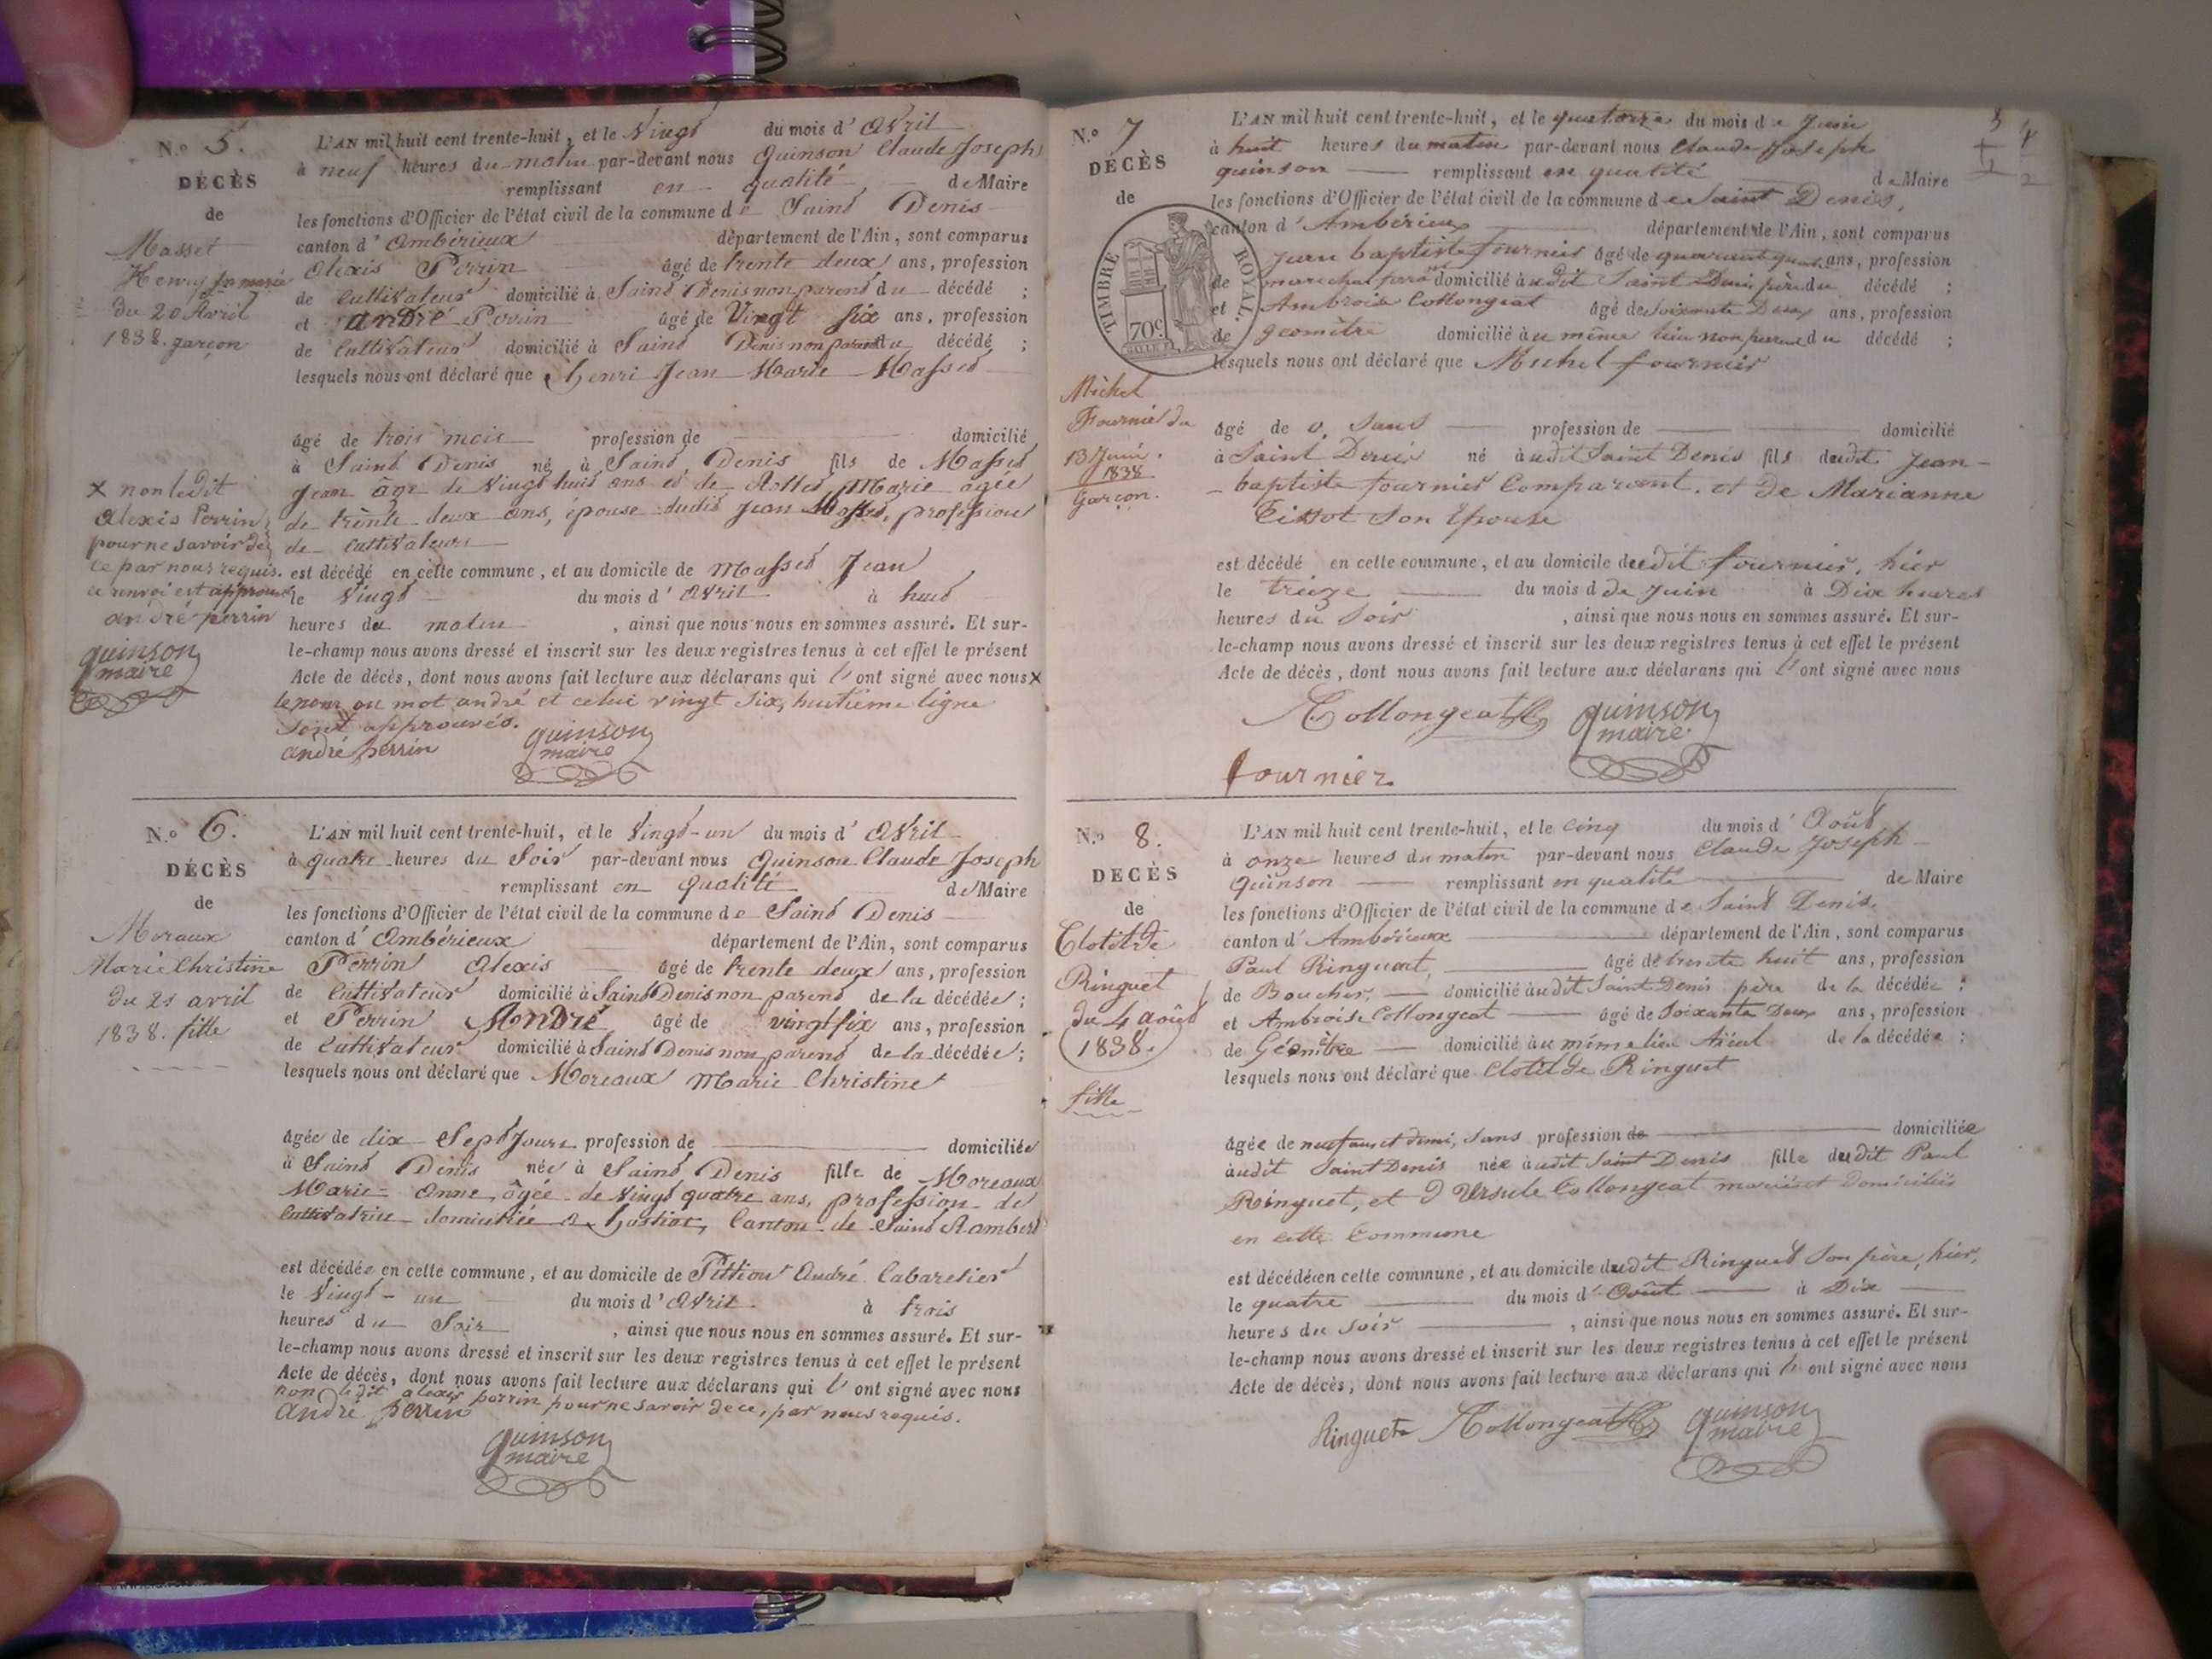 N.o 5.
DÉCÈS
de
Masset
Henry Jn marie
du 20 Avril
1838. garçon
L'AN mil huit cent trente-huit, et le Vingt du mois d' Avril
à neuf heures du matin par-devant nous Quinson Claude Joseph
remplissant en qualité de Maire
les fonctions d'Officier de l'état civil de la commune de Saint Denis
canton d' Ambérieux département de l'Ain, sont comparus
Alexis Perrin âgé de trente deux ans, profession
de Cultivateur domicilié à Saint Denis non parent du décédé ;
et andré Perrin âgé de Vingt six ans, profession
de Cultivateur domicilié à Saint Denis non parent du décédé ;
lesquels nous ont déclaré que henri Jean Marie Masset
âgé de trois mois profession de domicilié
à Saint Denis né à Saint Denis fils de Masset
Jean âgé de Vingt huit ans et de Marie agée
de trente deux ans, épouse dudit Jean Masset, profession
de Cultivateurs
est décédé en cette commune, et au domicile de Masset Jean
le Vingt du mois d' Avril à huit
heures du matin , ainsi que nous nous en sommes assuré. Et sur-
le-champ nous avons dressé et inscrit sur les deux registres tenus à cet effet le présent
Acte de décès, dont nous avons fait lecture aux déclarans qui l'ont signé avec nous X
le nom ou mot andré et celui vingt six, huitieme ligne
sont approuvés.
andré perrin quinson
maire
X non ledit
alexis Perrin
pour ne savoir de
ce par nous requis.
ce renvoi est approuvé
andré perrin
quinson
maire
N.o 6.
DÉCÈS
de
Moraux
Marie Christine
du 21 avril
1838. fille
L'AN mil huit cent trente-huit, et le Vingt-un du mois d' Avril
à quatre heures du Soir par-devant nous Quinson Claude Joseph
remplissant en qualité de Maire
les fonctions d'Officier de l'état civil de la commune de Saint Denis
canton d' Ambérieux département de l'Ain, sont comparus
Perrin Alexis âgé de trente deux ans, profession
de Cultivateur domicilié à Saint Denis non parent de la décédée ;
et Perrin André âgé de vingt six ans, profession
de Cultivateur domicilié à Saint Denis non parent de la décédée ;
lesquels nous ont déclaré que Moreaux Marie Christine
âgée de dix Sept Jours profession de domiciliée
à Saint Denis née à Saint Denis fille de Moreaux
Marie-Anne, âgée de Vingt quatre ans, profession de
Cultivatrice domiciliée a Canton de Saint Rambert
est décédée en cette commune, et au domicile de Pittion André Cabaretier
le Vingt-un du mois d' Avril à trois
heures du Soir , ainsi que nous nous en sommes assuré. Et sur-
le-champ nous avons dressé et inscrit sur les deux registres tenus à cet effet le présent
Acte de décès, dont nous avons fait lecture aux déclarans qui l'ont signé avec nous
non ledit alexis perrin pour ne savoir de ce, par nous requis.
andré perrin
quinson
maire
N.o 7
DÉCÈS
de
TIMBRE ROYAL.
70c
Michel
Fournier du
13 Juin.
1838
Garçon.
L'AN mil huit cent trente-huit, et le quatorze du mois de Juin
à huit heures du matin par-devant nous Claude Joseph
quinson remplissant en qualité de Maire
les fonctions d'Officier de l'état civil de la commune de Saint Denis,
canton d' Ambérieux département de l'Ain, sont comparus
Jean baptiste fournier âgé de quarante ans, profession
de marechal ferrant domicilié àudit Saint Denis père du décédé ;
et Ambroise Collongeat âgé de Soixante Deux ans, profession
de géomètre domicilié au même lieu non parent du décédé ;
lesquels nous ont déclaré que Michel fournier
âgé de profession de domicilié
à Saint Denis né àudit Saint Denis fils dudit Jean-
baptiste fournier Comparant, et de Marianne
Tissot Son Épouse
est décédé en cette commune, et au domicile dudit fournier, hier
le treize du mois d de Juin à Dix heures
heures du Soir , ainsi que nous nous en sommes assuré. Et sur-
le-champ nous avons dressé et inscrit sur les deux registres tenus à cet effet le présent
Acte de décès, dont nous avons fait lecture aux déclarans qui l'ont signé avec nous
Collongeat quinson
maire
fournier
N.o 8.
DÉCÈS
de
Clotilde
Ringuet
du 4 août
1838.
fille
L'AN mil huit cent trente-huit, et le cinq du mois d' Août
à onze heures du matin par-devant nous Claude Joseph
Quinson remplissant en qualité de Maire
les fonctions d'Officier de l'état civil de la commune de Saint Denis.
canton d' Ambérieux département de l'Ain, sont comparus
Paul Ringuet, âgé de trente huit ans, profession
de Boucher, domicilié àudit Saint Denis père de la décédée ;
et Ambroise Collongeat âgé de Soixante Deux ans, profession
de Géomètre domicilié au même lieu Aïeul de la décédée ;
lesquels nous ont déclaré que Clotilde Ringuet
âgée de neuf ans et demi, sans profession de domiciliée
àudit Saint Denis née àudit Saint Denis fille dudit Paul
Ringuet, et d'Ursule Collongeat mariés et domiciliés
en cette Commune
est décédée en cette commune, et au domicile dudit Ringuet Son père, hier,
le quatre du mois d' Août à Dix
heures du Soir , ainsi que nous nous en sommes assuré. Et sur-
le-champ nous avons dressé et inscrit sur les deux registres tenus à cet effet le présent
Acte de décès, dont nous avons fait lecture aux déclarans qui l'ont signé avec nous
Ringuet Collongeat quinson
maire